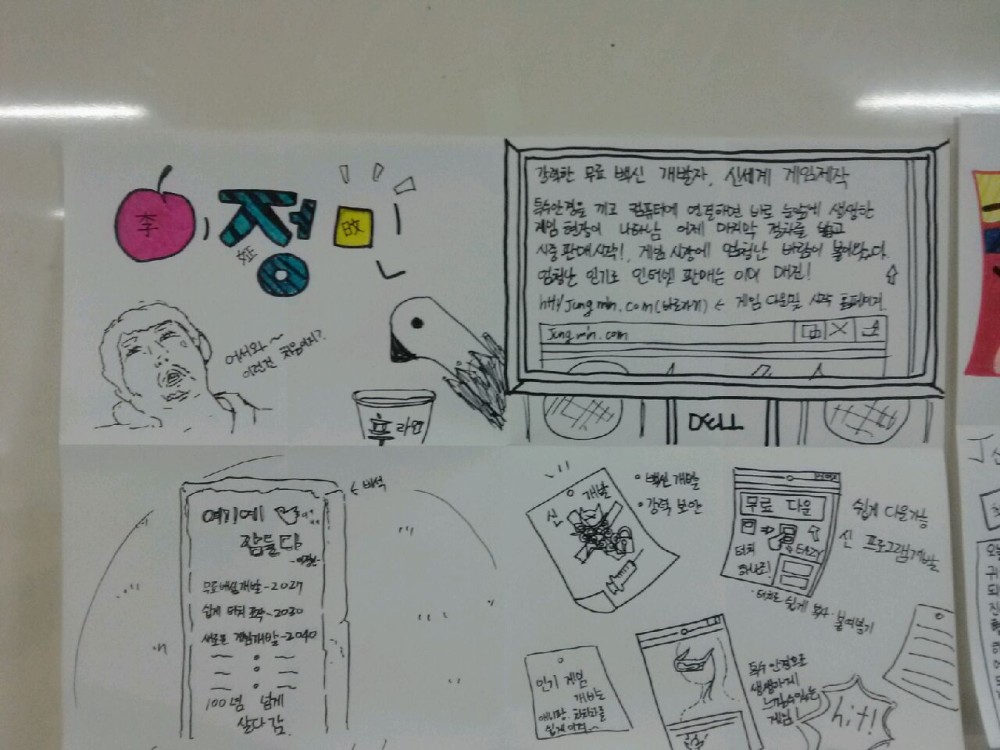 李 정 민
姃 旼
어서와~
이런건 처음이지?
휴 라면
강력한 무료 백신 개발자, 신세계 게임제작
특수안경을 끼고 컴퓨터에 연결하면 바로 눈앞에 생생한
게임 현장이 나타남 어제 마지막 절차를 밟고
시중 판매시작!, 게임 시장에 엄청난 바람이 불어왔다.
엄청난 인기로 인터넷 판매는 이미 매진!
htt/Jung min.com(바로가기) ← 게임 다운및 시작 홈페이지
Jung min.com
DELL
←비석
여기에
잠들다
-이정민-
무료백신개발-2027
쉽게 터치 조작-2030
새로운 게임개발-2040
100년 넘게
살다감
신 개발
•백신 개발
•강력 보안
무료 다운
터치
하나로!
& EAZY
쉽게 다운가능
신 프로그램개발
•터치로 쉽게 복사•붙여넣기
인기 게임
개발는
쉽게 이적~
특수 안경으로
생생하게
느낄수있는
게임!
hit!